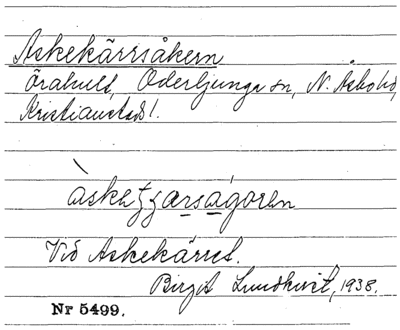 Askekärrsåkern
Örahult, Oderljunga sn, N. Åsbo hd,
Kristianstads l.
àske
Vid Askekärret.
Birgit Lundkvist, 1938.
Nr 5499.